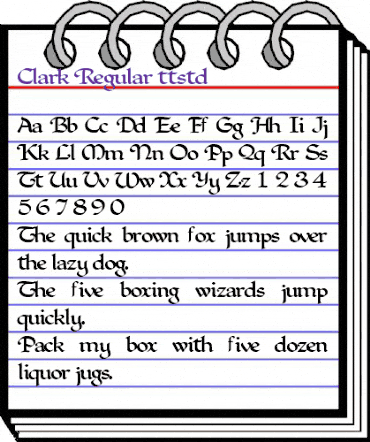 Clark Regular ttstd
Aa Bb Cc Dd Ee Ff Gg Hh Ii Jj
Kk Ll Mm Nn Oo Pp Qq Rr Ss
Tt Uu Vv Ww Xx Yy Zz 1 2 3 4
5 6 7 8 9 0
The quick brown fox jumps over
the lazy dog.
The five boxing wizards jump
quickly.
Pack my box with five dozen
liquor jugs.